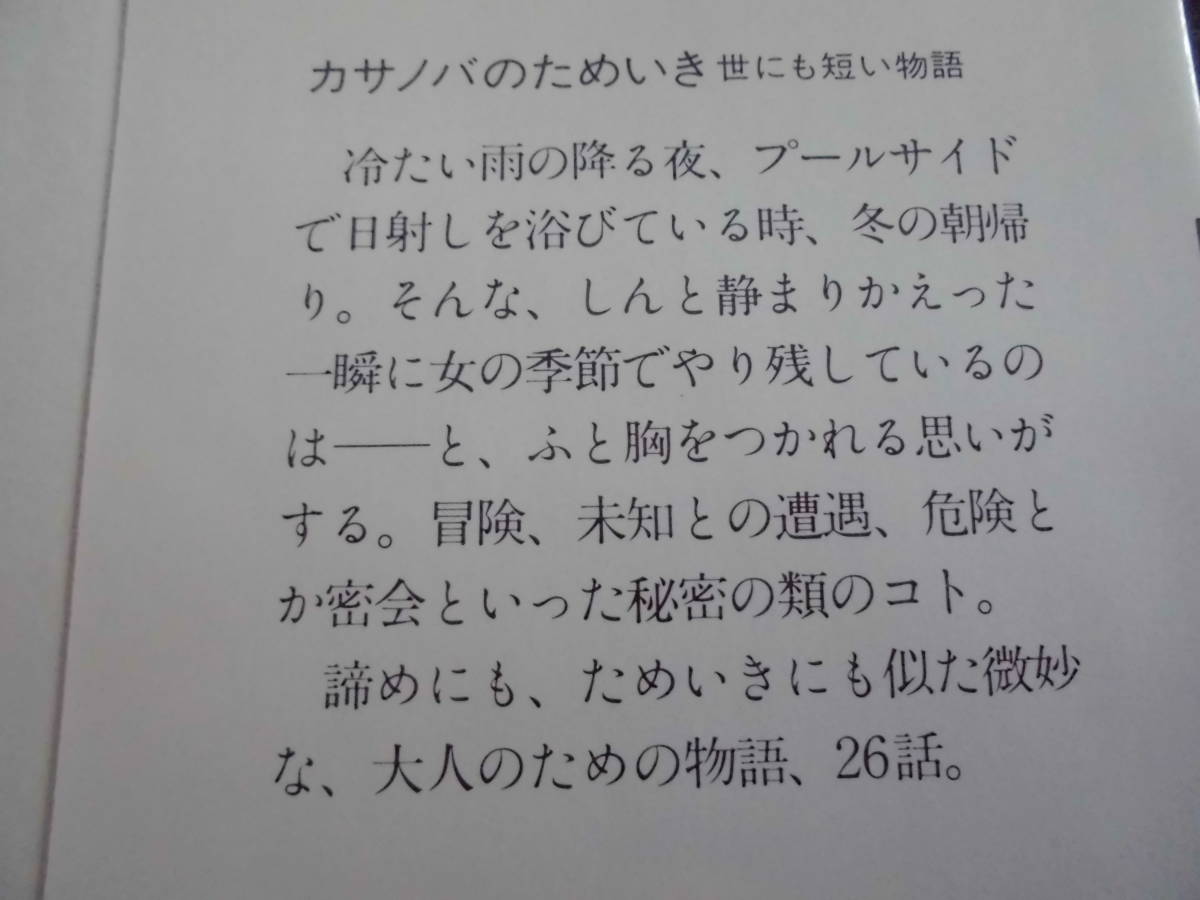 カサノバのためいき 世にも短い物語
冷たい雨の降る夜、プールサイド
で日射しを浴びている時、冬の朝帰
り。そんな、しんと静まりかえった
一瞬に女の季節でやり残しているの
は――と、ふと胸をつかれる思いが
する。冒険、未知との遭遇、危険と
か密会といった秘密の類のコト。
諦めにも、ためいきにも似た微妙
な、大人のための物語、26話。